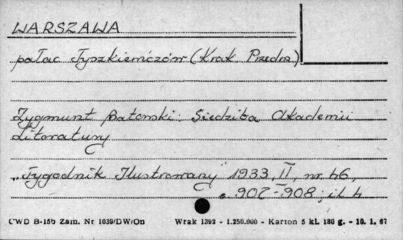 WARSZAWA
pałac Tyszkiewiczów (Krak Przedm.)
Zygmunt Batowski: Siedziba Akademii
Literatury
„Tygodnik Ilustrowany" 1933, II, nr 46,
s 907-908; il. 4
CWD B-15b Zam. Nr 1039/DW/On Wrak 1392 - 1.250.000 - Karton 5 kl. 180 g. - 10. 1. 67